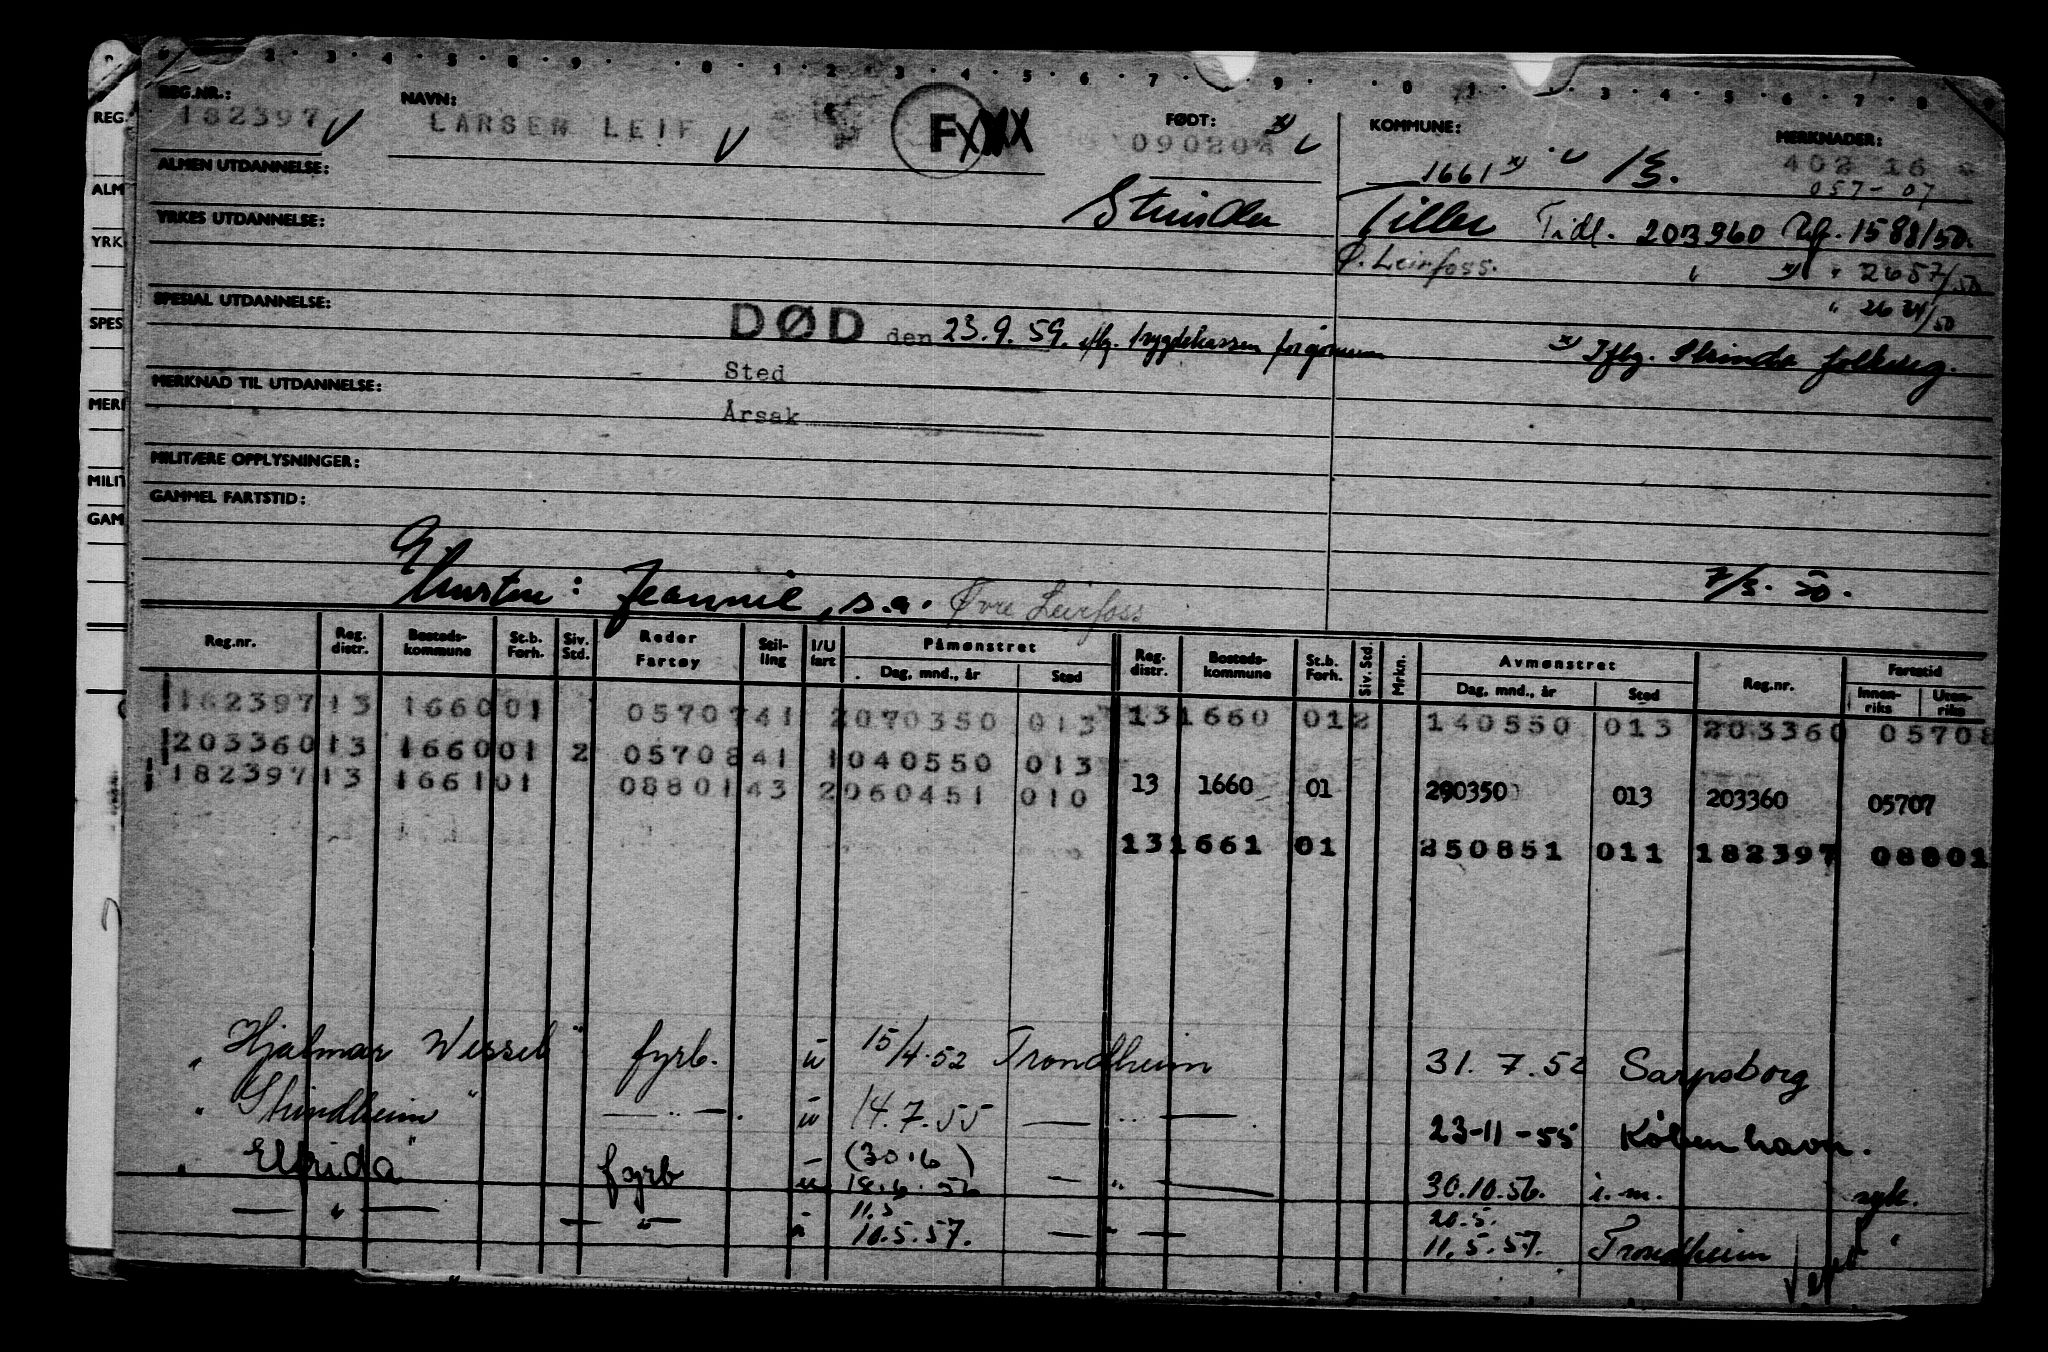 REG.NR.: NAVN: FØDT: KOMMUNE: MERKNADER:
182397 LARSEN LEIF 090204 1661 402 16
057-07
ALMEN UTDANNELSE:
Strinda Tiller Tidl. 203360 1588/50.
YRKES UTDANNELSE:
Ø. Leirfoss. " " 2657/50
" 2621/50
SPESIAL UTDANNELSE:
DØD den 23.9.59. iflg. trygdekassen
Iflg. Strinda folkereg.
Sted
MERKNAD TIL UTDANNELSE:
Årsak
MILITÆRE OPPLYSNINGER:
GAMMEL FARTSTID:
Hustru: Jeannie, s.a. Øvre Leirfoss
7/3. 50.
Reg.nr. Reg. distr. Bosteds-kommune St.b. Forh. Siv. Std. Reder Fartøy Stil-ling I/U fart Påmønstret Dag, mnd., år Sted Reg. distr. Bosteds-kommune St.b. Forh. Siv. Std. Mrkn. Avmønstret Dag, mnd., år Sted Reg.nr. Fartstid Innen-riks Uten-riks
182397 13 1660 01 05707 41 2 070350 013 13 1660 01 2 140550 013 203360 05708
203360 13 1660 01 2 05708 41 1 040550 013
13 1660 01 290350 013 203360 05707
182397 13 1661 01 08801 43 2 060451 010
13 1661 01 250851 011 182397 08801
"Hjalmar Wessel" fyrb. u 15/4.52 Trondheim 31.7.52 Sarpsborg
"Strindheim" — " — u 14.7.55 — " — 23-11-55 København.
"Elfrida" fyrb u (30.6) 18.6.56 — " — 30.10.56. i.m. syk.
— " — — " — u 11.5 10.5.57. — " — 20.5. 11.5.57. Trondheim "
REG.
ALM
YRK
SPES
MER
MILIT
GAM